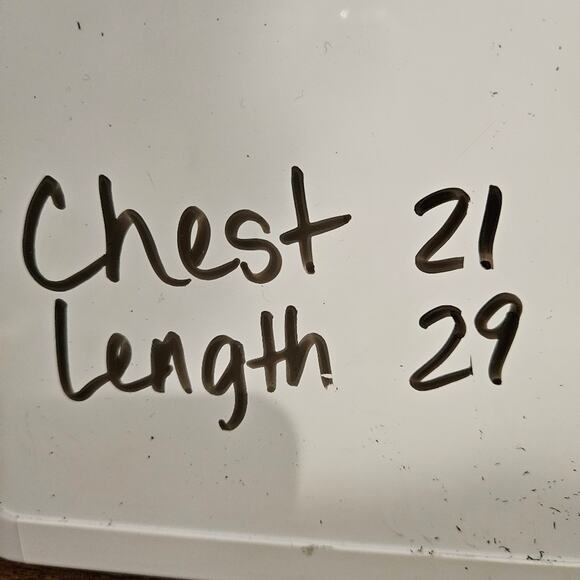 Chest 21
Length 29